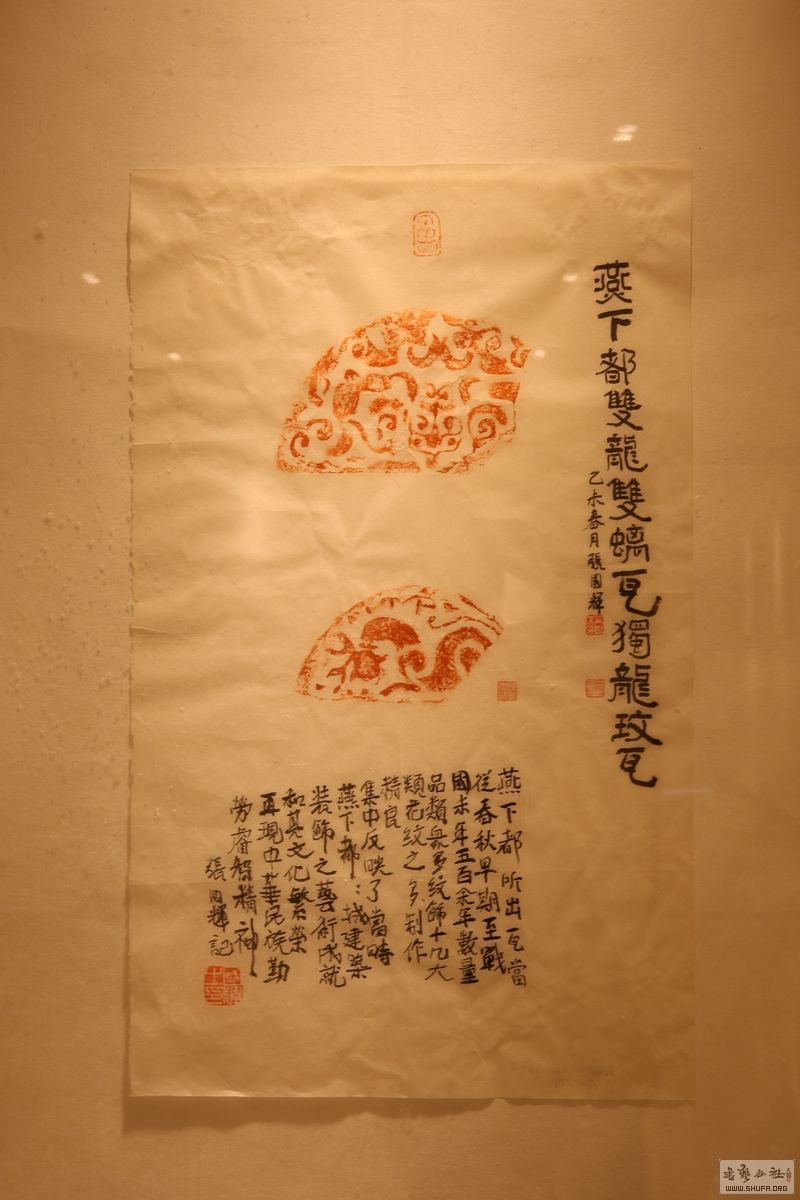 燕下都雙龍雙螭瓦獨龍玟瓦
乙未春月張國輝
燕下都所出瓦當
從春秋早期至戰
國末年五百余年數量
品類眾多紋飾十几大
類花紋之多制作
精良
集中反映了當時
燕下都城建築
裝飾之藝術成就
和其文化繁榮
再現中華民族勤
勞睿智精神
張國輝記
書藝公社
WWW.SHUFA.ORG